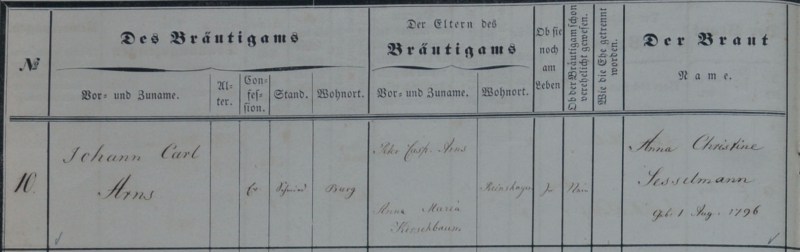 №
Des Bräutigams
Vor= und Zuname.
Al-
ter.
Con-
fes-
sion.
Stand.
Wohnort.
Der Eltern des
Bräutigams
Vor= und Zuname.
Wohnort.
Ob sie
noch
am
Leben
Ob der Bräutigam schon
verehelicht gewesen.
Wie die Ehe getrennt
worden.
Der Braut
Name.
10.
Johann Carl
Arns
Ev
Schmied
Burg
Peter Casp. Arns
Anna Maria
Kirschbaum
Reinshagen
Ja
Nein
Anna Christine
Jesselmann
geb. 1 Aug. 1796